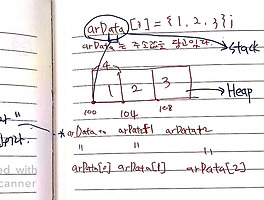 arData [3] = {1, 2, 3};
arData는 주소값을 담고있다.
Stack
4
1 2 3
Heap
100 104 108
* arData+0 arData+1 arData+2
" " "
arData[0] arData[1] arData[2]
ed with
canner